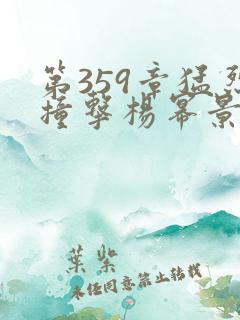 第359章猛烈
撞擊楊冪景
葉紫
未经同意禁止转载